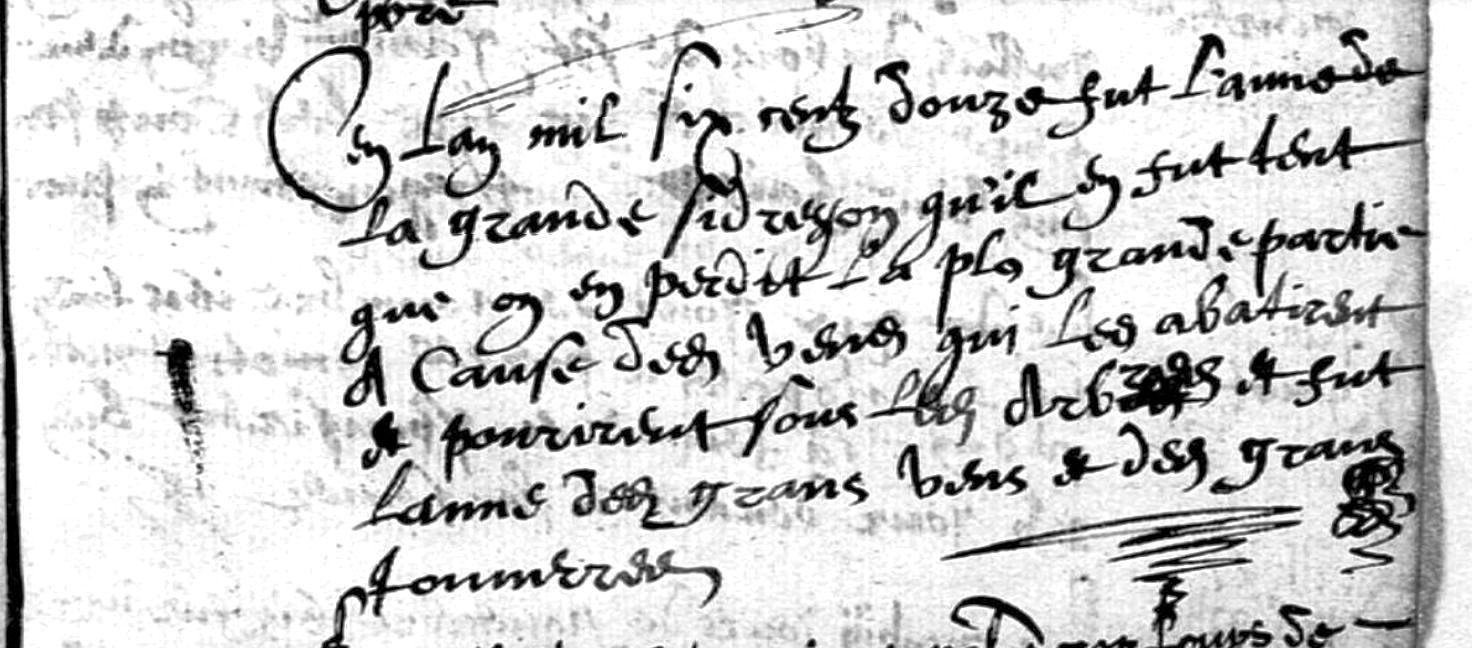 en lan mil six centz douze fut lannee de
la grande sidrezon quil en fut tent
que on en perdit la plus grande partie
A Cause des vens qui les abatirent
et pourirent sous les Arbres et fut
lanne des grans vens et des grans
tounerres